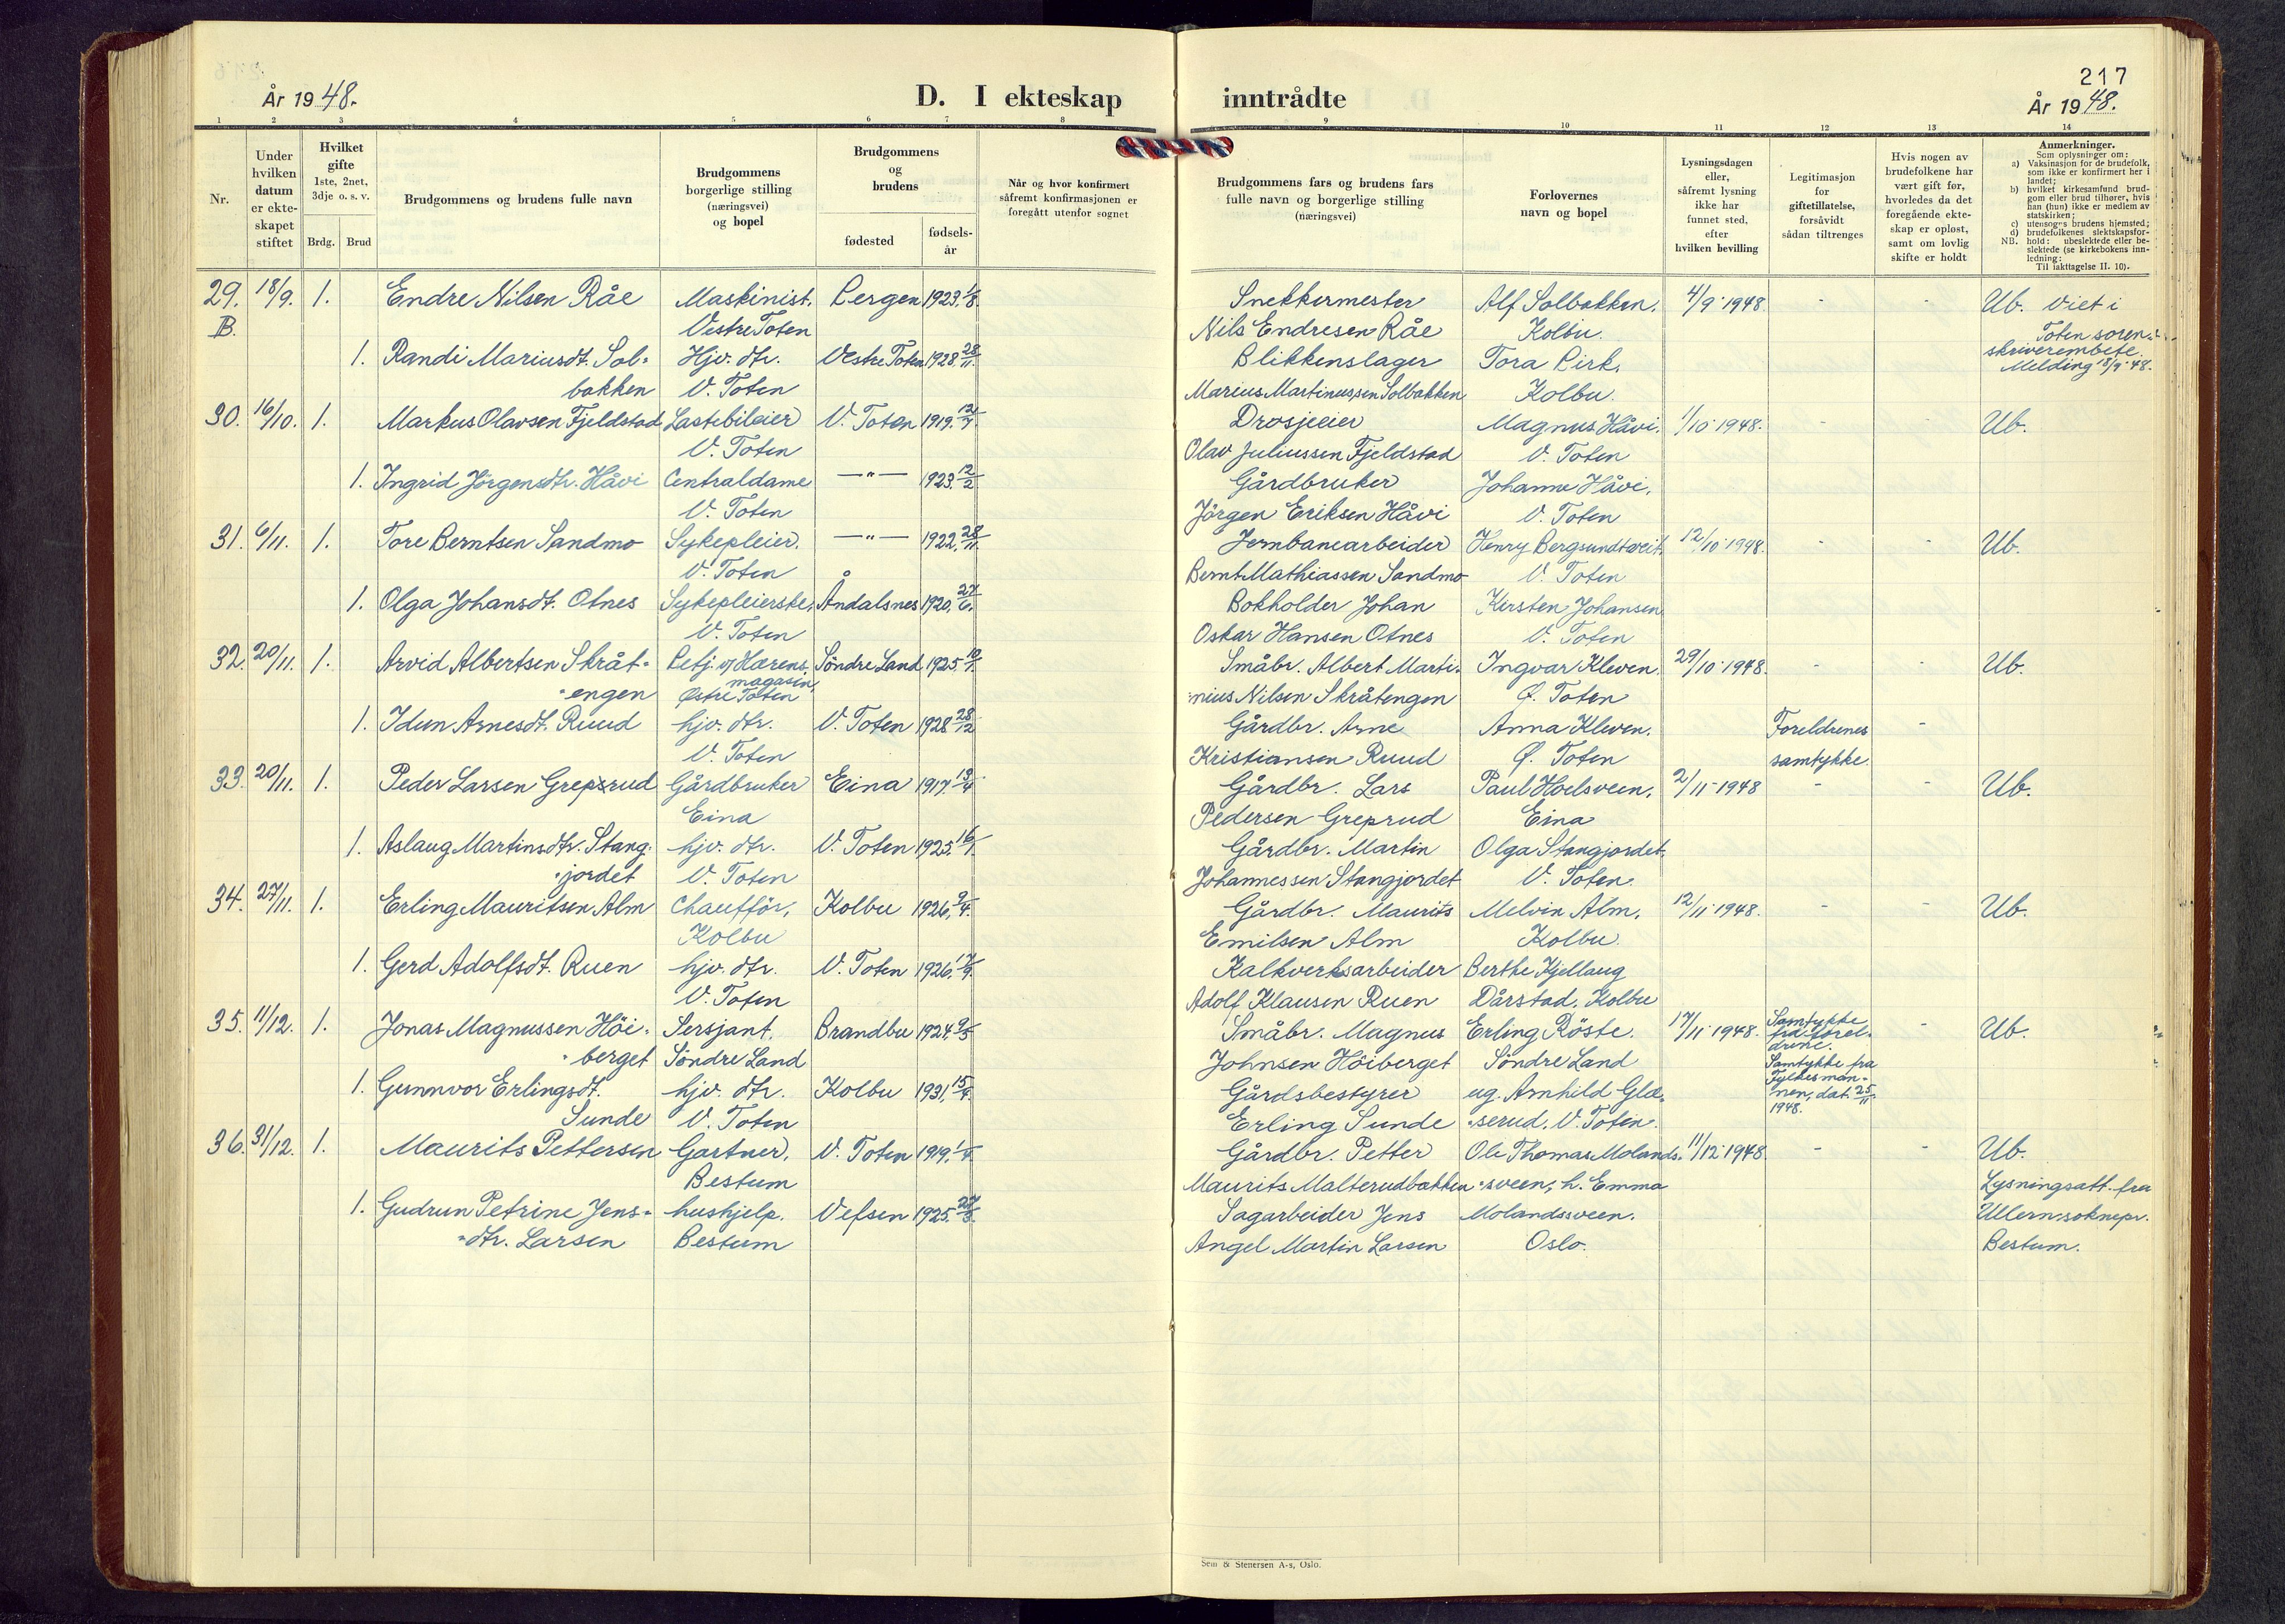 217
År 1948.
D. I ekteskap inntrådte
År 1948.
1 2 3 4 5 6 7 8 9 10 11 12 13 14
Nr.
Under hvilken datum er ekteskapet stiftet
Hvilket gifte 1ste, 2net, 3dje o. s. v.
Brdg. Brud
Brudgommens og brudens fulle navn
Brudgommens borgerlige stilling (næringsvei) og bopel
Brudgommens og brudens
fødested
fødselsår
Når og hvor konfirmert såfremt konfirmasjonen er foregått utenfor sognet
Brudgommens fars og brudens fars fulle navn og borgerlige stilling (næringsvei)
Forlovernes navn og bopel
Lysningsdagen eller, såfremt lysning ikke har funnet sted, efter hvilken bevilling
Legitimasjon for giftetillatelse, forsåvidt sådan tiltrenges
Hvis nogen av brudefolkene har vært gift før, hvorledes da det foregående ekteskap er opløst, samt om lovlig skifte er holdt
Anmerkninger.
Som oplysninger om:
a) Vaksinasjon for de brudefolk, som ikke er konfirmert her i landet;
b) hvilket kirkesamfund brudgom eller brud tilhører, hvis han (hun) ikke er medlem av statskirken;
c) utensogns brudens hjemsted;
d) brudefolkenes slektskapsforhold: ubeslektede eller beslektede (se kirkebokens innledning:
NB.
Til iakttagelse II. 10).
29. 18/9. 1. Endre Nilsen Råe Maskinist. Bergen 1923. 1/8. Snekkermester Alf Solbakken. 4/9 1948. - - Ub. Viet i
B. Vestre Toten Nils Endresen Råe Kolbu. Toten soren-
1. Randi Mariusdt. Sol- Hjv. dtr. Vestre Toten 1928. 28/11. Blikkenslager Tora Birk. skriverembete.
bakken V. Toten Marius Martinussen Solbakken Kolbu. Melding 18/9-48.
30. 16/10. 1. Markus Olavsen Fjeldstad Lastebileier V. Toten 1919. Drosjeeier Magnus Håvi. 1/10 1948. - - Ub.
V. Toten Olav Juliussen Fjeldstad V. Toten
1. Ingrid Jörgensdtr. Håvi Centraldame —"— 1923. 12/2 Gårdbruker Johanne Håvi.
V. Toten Jörgen Eriksen Håvi V. Toten
31. 6/11. 1. Tore Berntsen Sandmo Sykepleier. —"— 1922. 28/11. Jernbanearbeider Henry Bergsundtveit 12/10 1948. - - Ub.
V. Toten Bernt Mathiassen Sandmo V. Toten
1. Olga Johansdt. Otnes Sykepleierske, Åndalsnes 1920. 27/6. Bokholder Johan Kirsten Johansen
V. Toten Oskar Hansen Otnes V. Toten
32. 20/11. 1. Arvid Albertsen Skråt- Betj. v/ Hærens Söndre Land 1925 Småbr. Albert Marti- Ingvar Kleven. 29/10 1948. - - Ub.
magasin,
-engen Østre Toten -nius Nilsen Skråtengen Ø. Toten
1. Idun Arnesdt. Ruud hjv. dtr. V. Toten 1928 28/12 Gårdbr. Arne Anna Kleven. Foreldrenes -
V. Toten Kristiansen Ruud Ø. Toten samtykke.
33. 20/11. 1. Peder Larsen Greprud Gårdbruker Eina 1917 13/4 Gårdbr. Lars Paul Hoelsveen. 2/11 1948 - - Ub.
Eina Pedersen Greprud Eina
1. Aslaug Martinsdtr. Stang- hjv. dtr. V. Toten 1925. 16/1. Gårdbr. Martin Olga Stangjordet.
-jordet V. Toten Johannessen Stangjordet V. Toten.
34. 27/11. 1. Erling Mauritsen Alm Chaufför, Kolbu 1926. 9/4. Gårdbr. Maurits Melvin Alm. 12/11 1948. - - Ub.
Kolbu Emilsen Alm Kolbu.
1. Gerd Adolfsdt. Ruen hjv. dtr. V. Toten 1926. Kalkverksarbeider Berthe Kjellaug
V. Toten Adolf Klausen Ruen Dårstad. Kolbu
35. 11/12. 1. Jonas Magnussen Höi- Sersjant. Brandbu 1924. 9/5 Småbr. Magnus Erling Röste. 17/11 1948. Samtykke fra foreldrene. - Ub.
-berget Söndre Land Johnsen Höiberget Söndre Land Samtykke fra
1. Gunnvor Erlingsdt. hjv. dtr. Kolbu 1931. 15/4. Gårdsbestyrer ug. Arnhild Glæ- Fylkesmannen, dat. 25/11
Sunde V. Toten Erling Sunde -serud. V. Toten. 1948.
36. 31/12. 1. Maurits Pettersen Gartner. V. Toten 1919. 1/4. Gårdbr. Petter Ole Thomas Molands- 11/12 1948. - - Ub.
Bestum Maurits Malterudbakken -sveen, h. Emma Lysningsatt. fra
1. Gudrun Petrine Jens- hushjelp. Vefsen 1925. 27/3. Sagarbeider Jens Molandssveen. Ullern soknepr.
-dtr. Larsen Bestum Angel Martin Larsen Oslo. Bestum.
Sem & Stenersen A-s, Oslo.